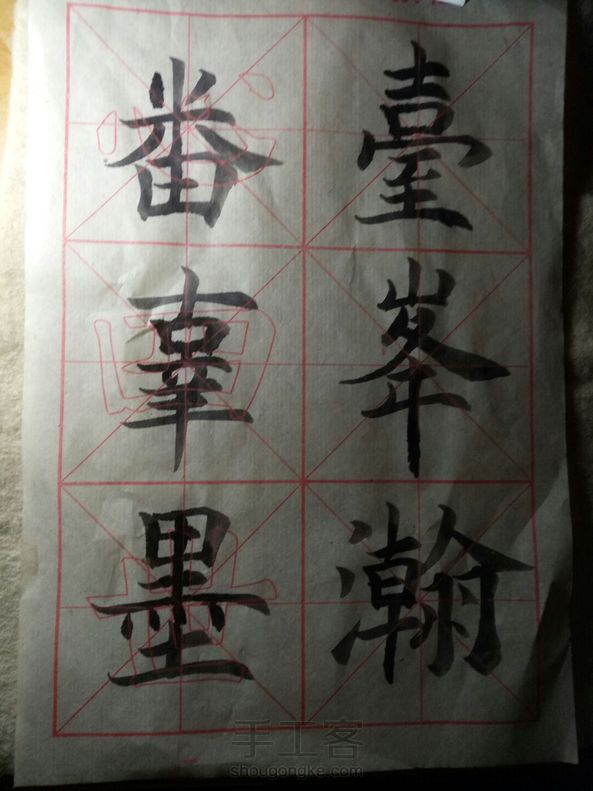 臺峯瀚
畨辜墨
手工客
shougongke.com